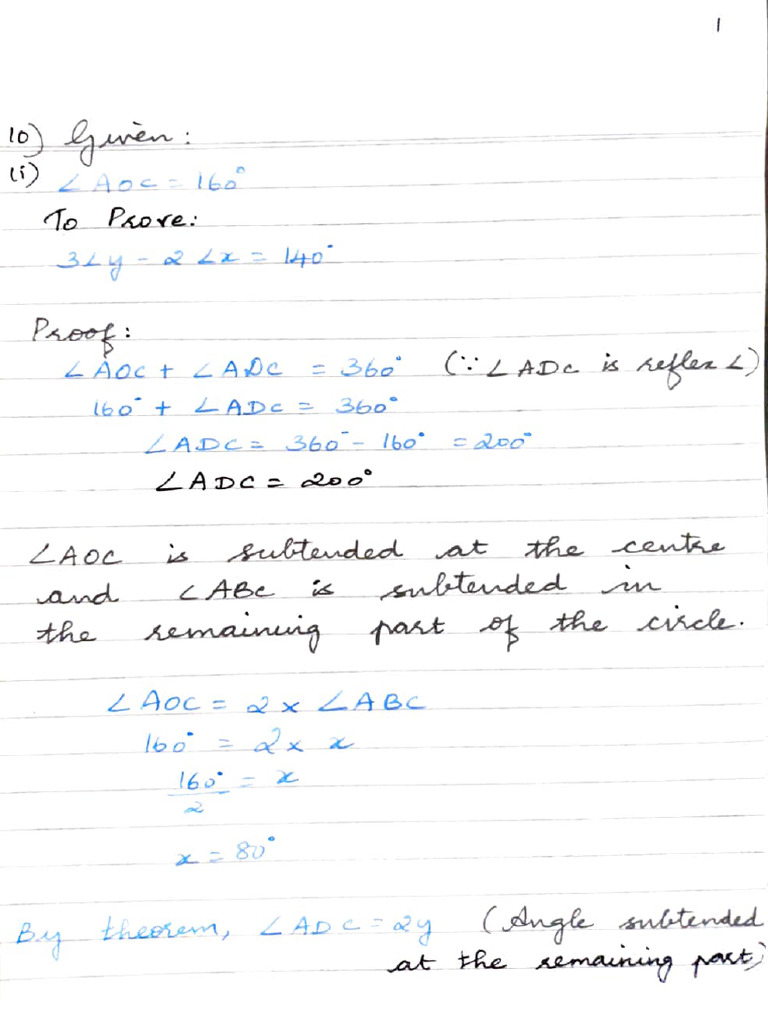 1
10) Given:
(i) ∠AOC = 160°
To Prove:
3∠y - 2∠x = 140°
Proof:
∠AOC + ∠ADC = 360° (∵ ∠ADC is reflex ∠)
160° + ∠ADC = 360°
∠ADC = 360° - 160° = 200°
∠ADC = 200°
∠AOC is subtended at the centre
and ∠ABC is subtended in
the remaining part of the circle.
∠AOC = 2 × ∠ABC
160° = 2 × x
160°/2 = x
x = 80°
By theorem, ∠ADC = 2y (Angle subtended
at the remaining part)